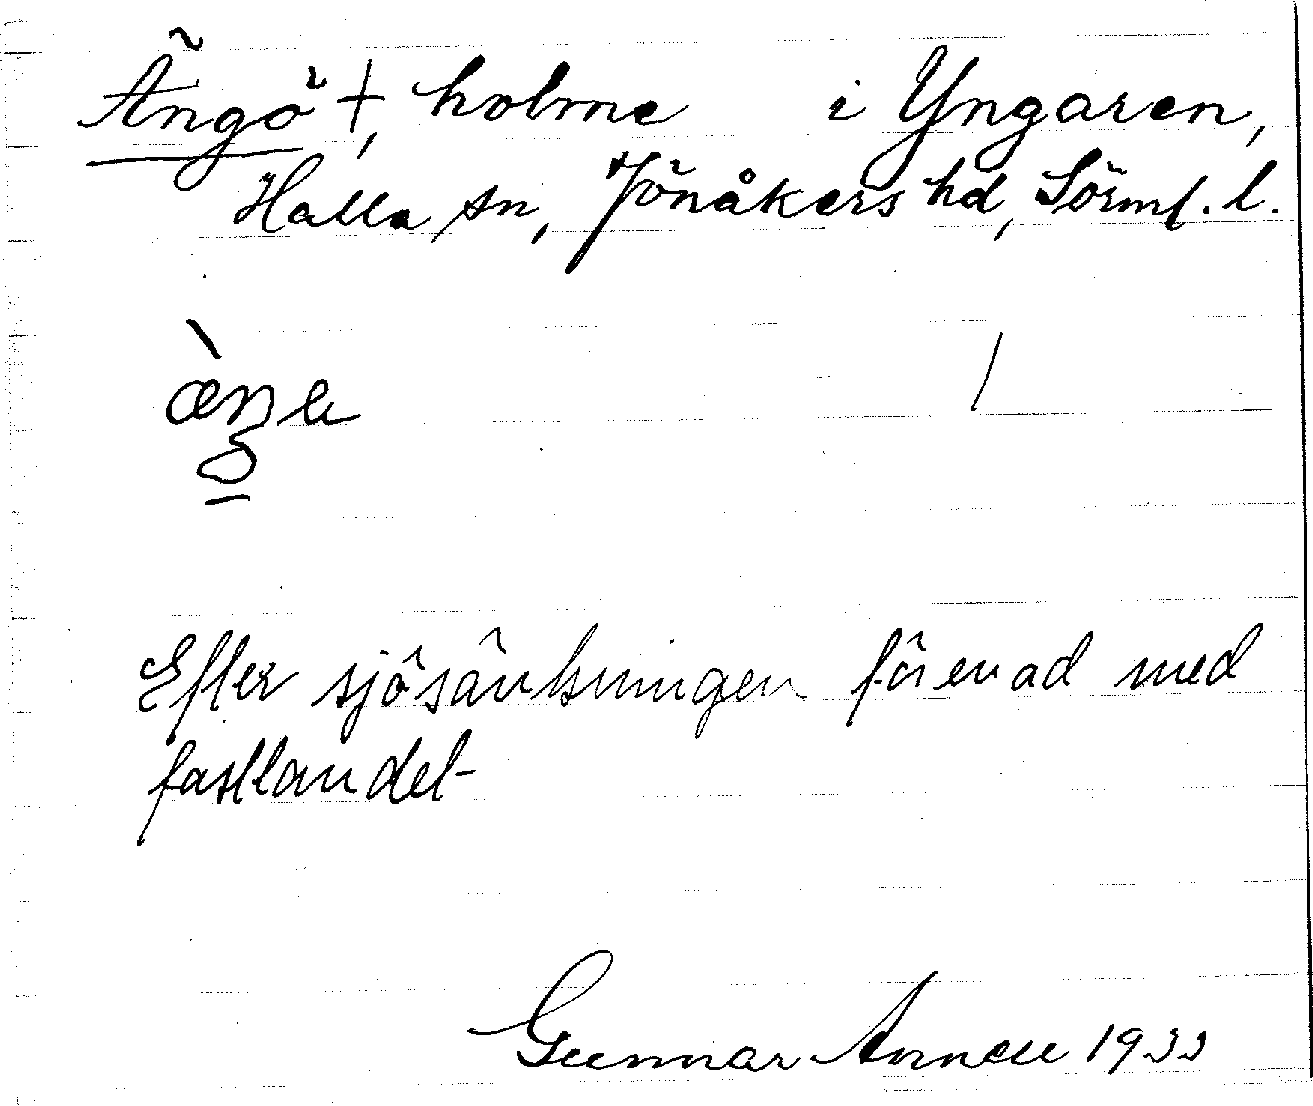 Ängö †, holme i Yngaren,
Halla sn, Jönåkers hd, Sörml. l.
Efter sjösänkningen förenad med
fastlandet
Gunnar Annell 1933